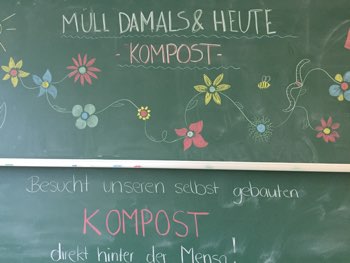 MÜLL DAMALS & HEUTE
- KOMPOST -
Besucht unseren selbst gebauten
KOMPOST
direkt hinter der Mensa!